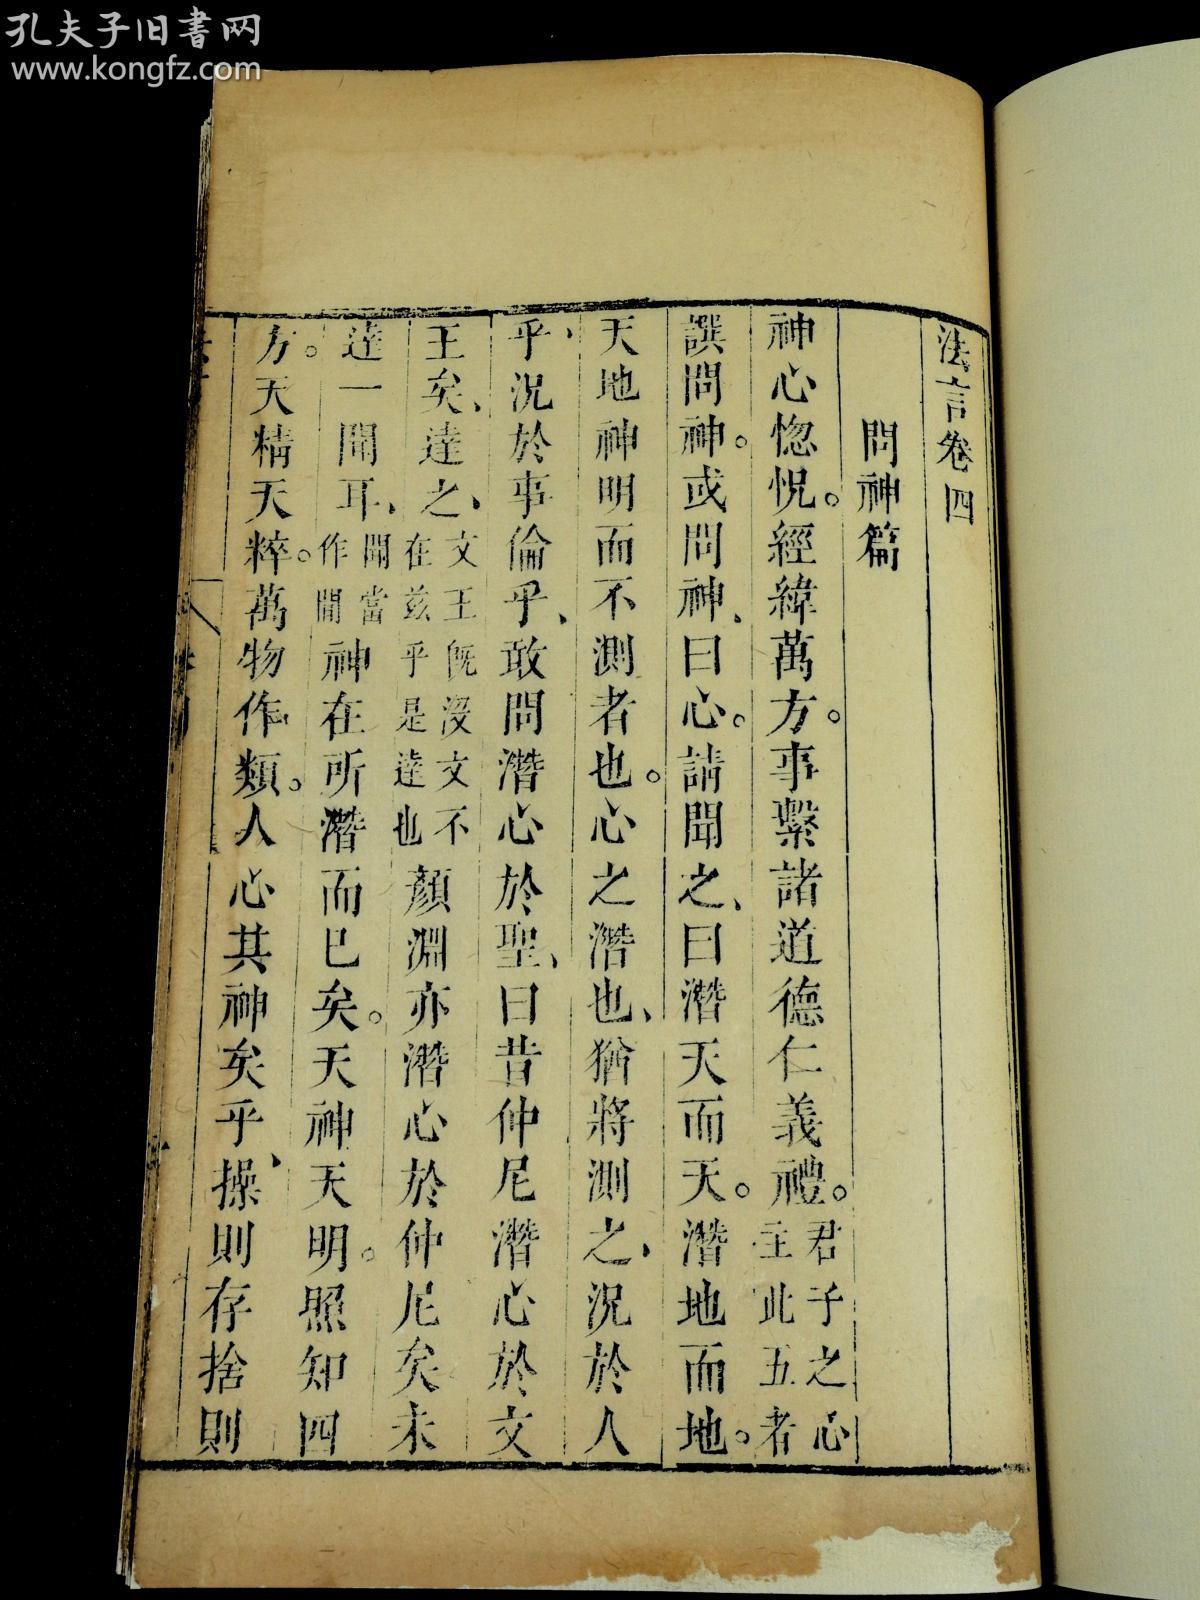 孔夫子旧书网
www.kongfz.com
法言卷四
問神篇
神心惚怳。經緯萬方。事繫諸道德仁義禮。君子之心主此五者
譔問神。或問神、曰心。請聞之、曰潛天而天。潛地而地。
天地神明而不測者也。心之潛也、猶將測之、況於人
乎、況於事倫乎、敢問潛心於聖、曰昔仲尼潛心於文
王矣、達之、文王旣沒文不在茲乎是達也顏淵亦潛心於仲尼矣未
達一閒耳、閒當作閒神在所潛而已矣。天神天明。照知四
方。天精天粹。萬物作類。人心其神矣乎、操則存捨則